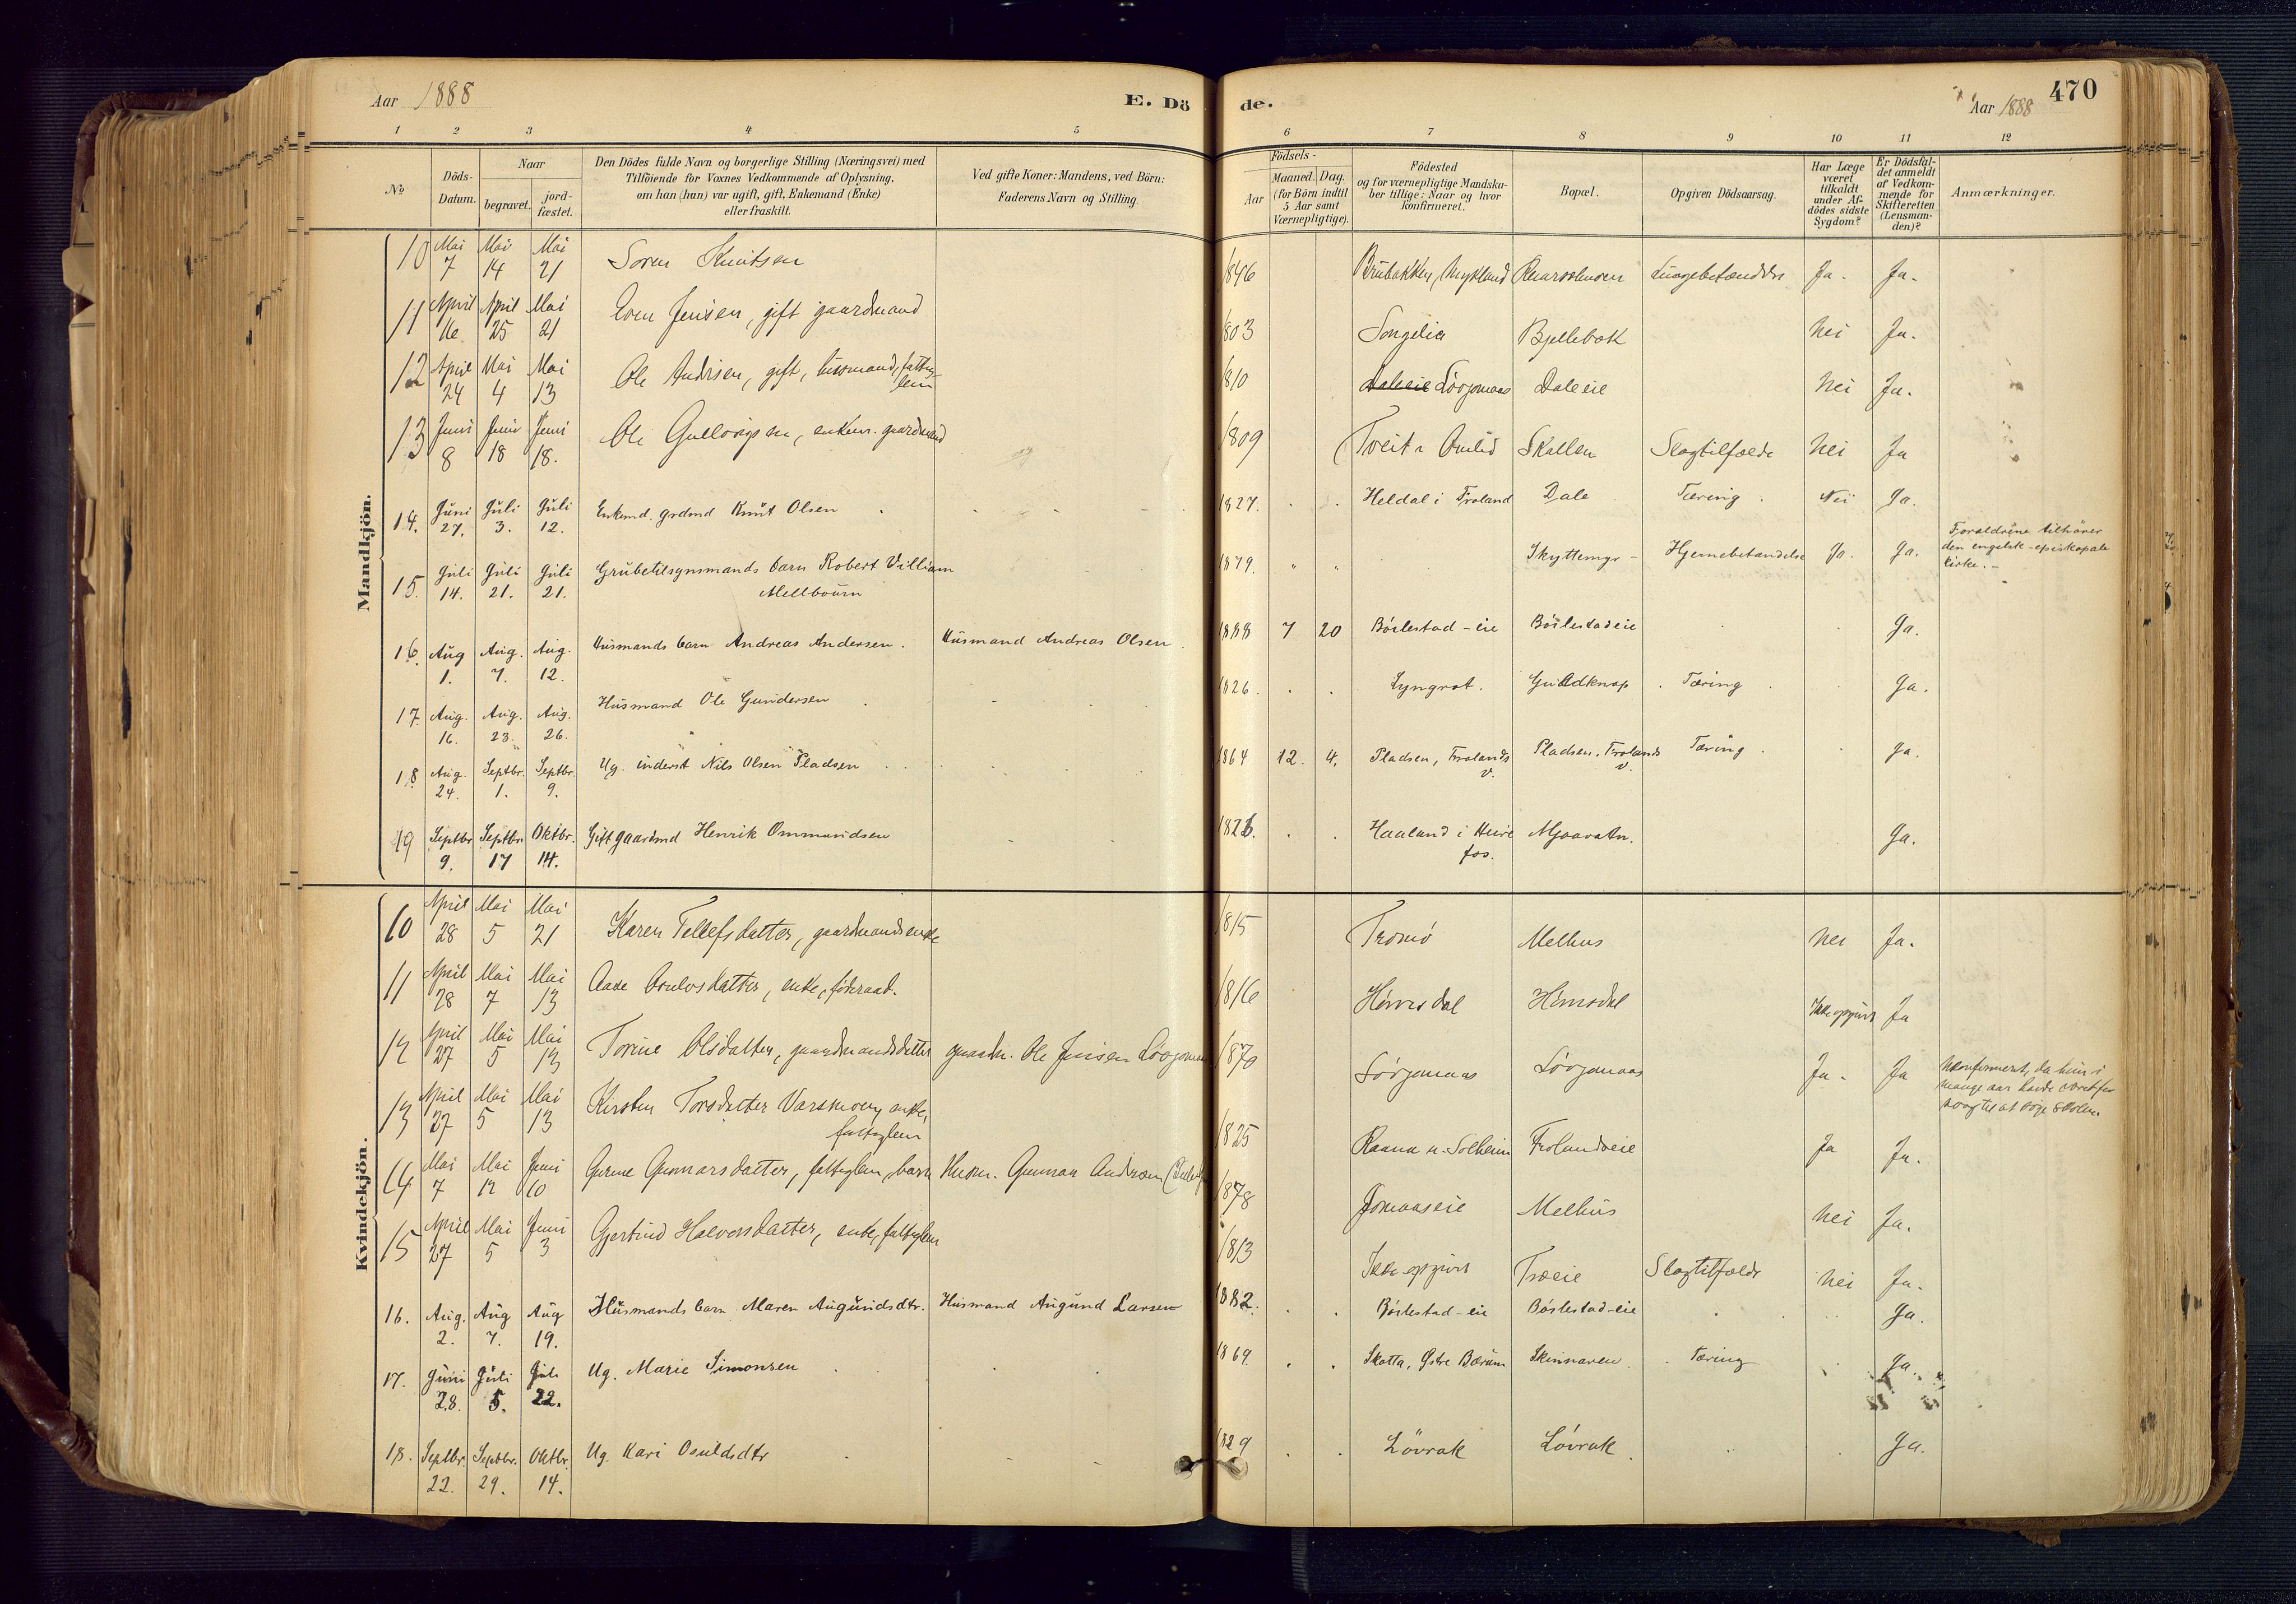 Aar 1888
E. Dö
de.
Aar 1888
470
1 2 3 4 5 6 7 8 9 10 11 12
No
Döds-Datum.
Naar
begravet.
jord-fæstet.
Den Dödes fulde Navn og borgerlige Stilling (Næringsvei) med
Tilföiende for Voxnes Vedkommende af Oplysning,
om han (hun) var ugift, gift, Enkemand (Enke)
eller fraskilt.
Ved gifte Koner: Mandens, ved Börn:
Faderens Navn og Stilling.
Födsels-
Aar
Maaned. Dag.
(for Börn indtil
5 Aar samt
Værnepligtige).
Födested
og for værnepligtige Mandska-
ber tillige: Naar og hvor
konfirmeret.
Bopæl.
Opgiven Dödsaarsag.
Har Læge
været
tilkaldt
under Af-
dödes sidste
Sygdom?
Er Dödsfal-
det anmeldt
af Vedkom-
mende for
Skifteretten
(Lensman-
den)?
Anmærkninger.
Mandkjön.
10 Mai 7 Mai 14 Mai 21 Soren Knutsen 1846 Mykland Ja. Ja.
11 April 16 April 25 Mai 21 Even Jensen, gift gaardmand 1803 Songelia Bjellebæk Nei Ja.
12 April 24 Mai 4 Mai 13 Ole Andersen, gift, husmand, fattig-
lem 1810 Daleeie Daleeie Nei Ja.
13 Juni 8 Juni 18 Juni 18. Ole enkem. gaardmand 1809 Skallen Slagtilfælde Nei Ja
14. Juni 27. Juli 3. Juli 12. Enkmd. grdmd Knut Olsen 1827. Heldal i Froland Dale Tæring Nei Ja.
15. Juli 14. Juli 21. Juli 21. Grubetilsynsmands barn Robert William
Mellbourn 1879. Skyttemyr - Hjernebetændelse Ja. Ja. Forældrene tilhörer
den engelsk-episkopale
kirke. -
16. Aug 1. Aug. 7. Aug. 12. Husmands barn Andreas Andersen. Husmand Andreas Olsen. 1888 7 20 Böilestad-eie Böilestadeie Ja.
17. Aug. 16. Aug. 23. Aug. 26. Husmand Ole Gundersen 1826. Lyngrot. Guldknap Tæring Ja.
18 Aug. 24. Septbr. 1. Septbr. 9. Ug. inderst Nils Olsen Pladsen 1864 12. 4. Pladsen, Frolands
v. Pladsen, Frolands
v. Tæring Ja.
19 Septbr 9. Septbr. 17 Oktbr. 14. Gift gaardmd Henrik Ommundsen Haaland i Heire
fos. Mjaavatn. Ja.
Kvindekjön.
10 April 28 Mai 5 Mai 21 Karen Tellefsdatter, gaardmandsenke 1815 Tromö Melhus Nei Ja.
11 April 28 Mai 7 Mai 13 Aase enke, föderaad. 1816 Ikke opgivet Ja
12 April 27 Mai 5 Mai 13 Torine Olsdatter, gaardmandsdatter gaardm. Ole Jensen 1870 Ja. Ja Ukonfirmert, da hun i
mange aar havde været for
svag til at söge skolen.
13 April 27 Mai 5 Mai 13 Kirsten Torsdatter enke,
fattiglem 1825 Frolandseie Ja Ja.
14 Mai 7 Mai 12 Juni 10 Gunnarsdatter, fattiglem, barn Husm. Gunnar Andersen 1878 Jomaaseie Melhus Nei Ja.
15 April 27 Mai 5 Juni 3 Gjertrud Halvorsdatter, enke, fattiglem 1813 Ikke opgivet Træeie Slagtilfælde Nei Ja.
16. Aug. 2. Aug 7. Aug 19. Husmands barn Maren Augundsdtr. Husmand Augund Larsen 1882. Böilestad-eie Böilestad-eie Ja.
17. Juni 28. Juli 5. Juli 22. Ug. Marie Simonsen 1869. Skotta, Østre Bærum Skinnaren. Tæring Ja.
18. Septbr. 22. Septbr. 29. Oktbr. 14. Ug. Kari Osuldsdtr 1829 Lövrak Lövrak Ja.